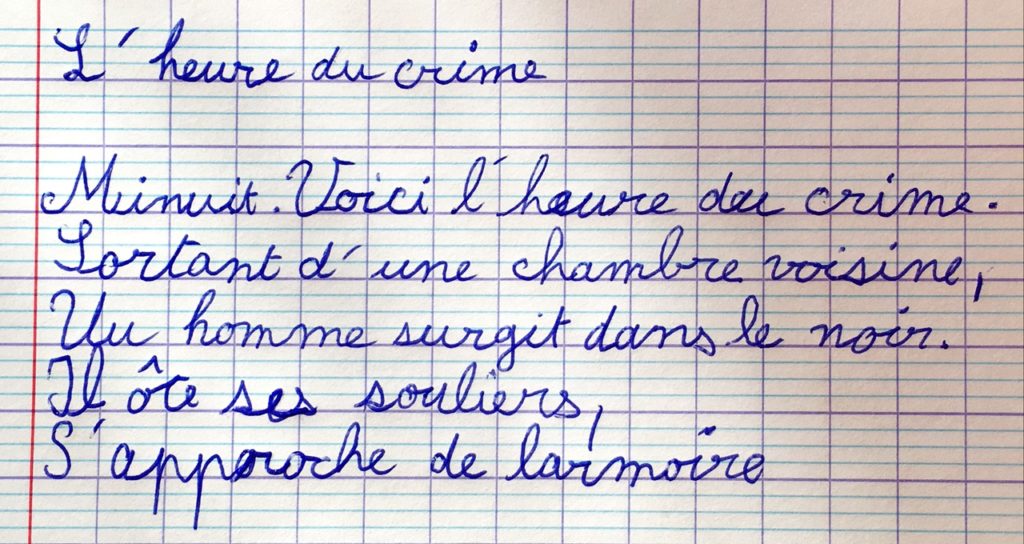 L'heure du crime
Minuit. Voici l'heure du crime.
Sortant d'une chambre voisine,
Un homme surgit dans le noir.
Il ôte ses souliers,
S'approche de larmoire